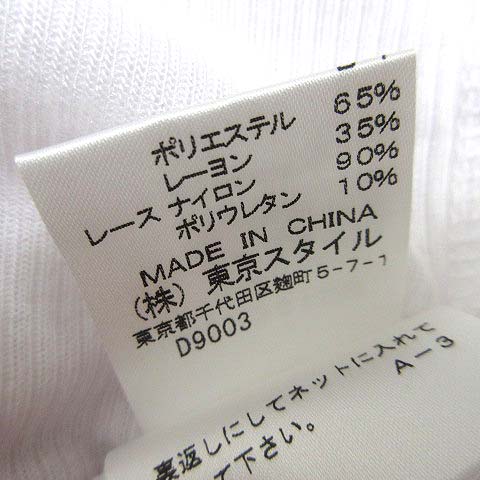 ポリエステル 65%
レーヨン 35%
レース ナイロン 90%
ポリウレタン 10%
MADE IN CHINA
(株) 東京スタイル
東京都千代田区麹町5-7-1
D9003
裏返しにしてネットに入れて
下さい。
A-3